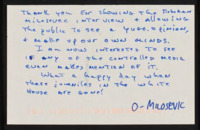 THANK YOU FOR SHOWING THE
MILOSEVIC INTERVIEW & ALLOWING
THE PUBLIC TO SEE A YUGO. OPINION,
& MAKE UP OUR OWN MINDS.
I AM NOW INTERESTED TO SEE
IF ANY OF THE CONTROLLED MEDIA
EVEN MAKES MENTION OF IT.
WHAT A HAPPY DAY WHEN
THESE JUVENILES IN THE WHITE
HOUSE ARE GONE!
O - MILOSEVIC